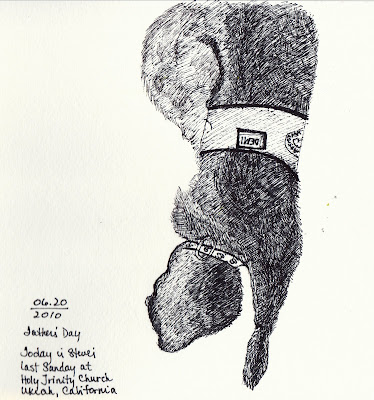 06.20
2010
Father's Day
Today is Steve's
last Sunday at
Holy Trinity Church
Ukiah, California